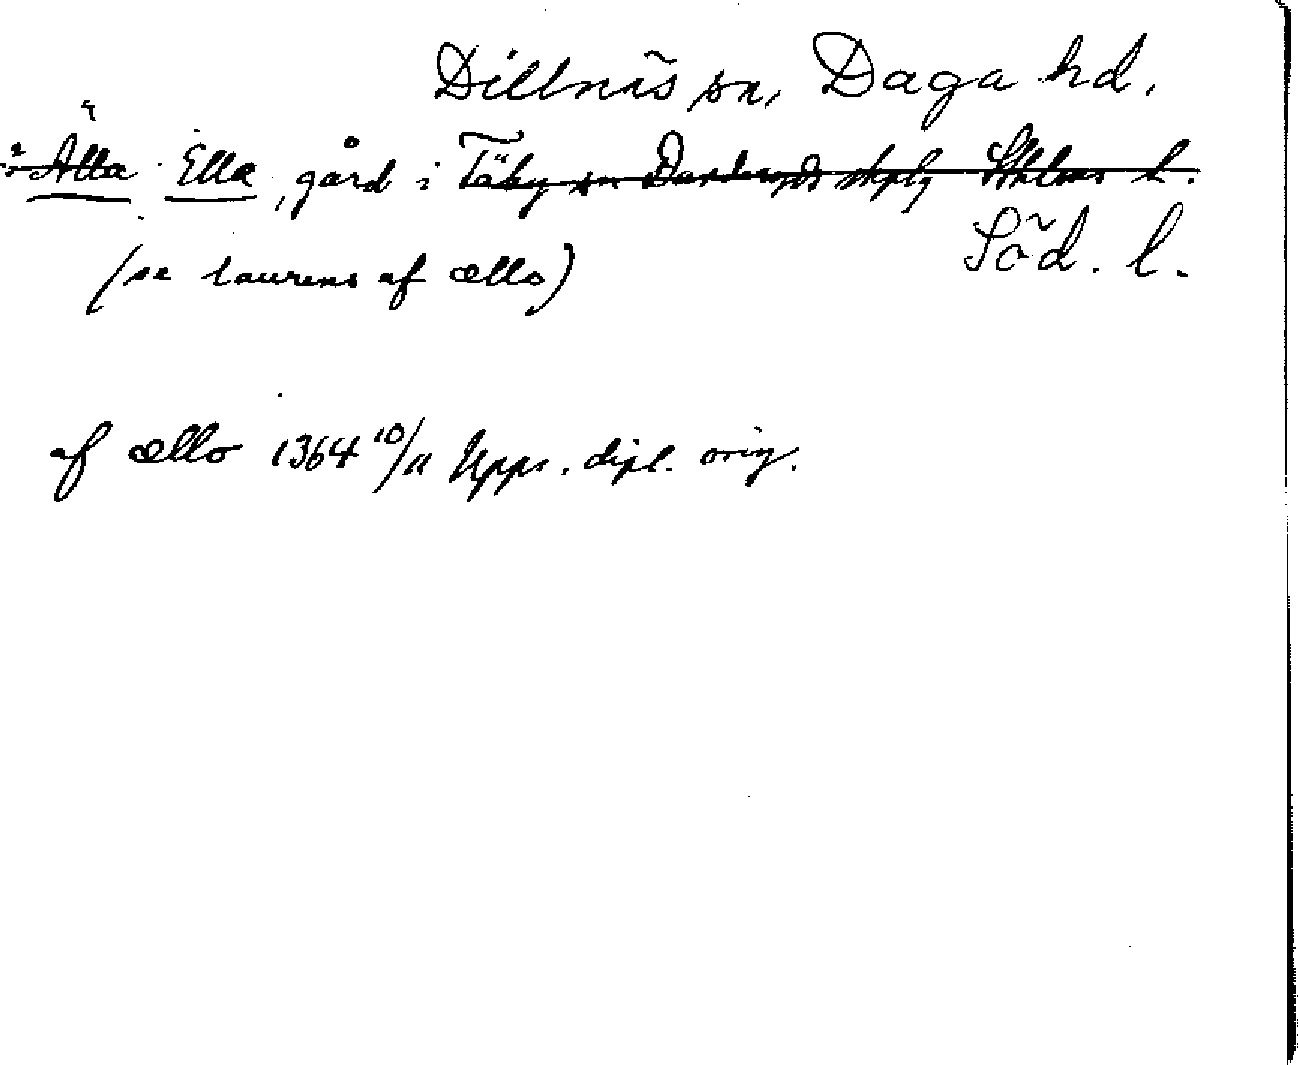 Dillnäs sn, Daga hd.
Älla Ella, gård i Täby sn Danderyds skplg Sthlms l.
Söd. l.
(se laurens af ællo)
af ællo 1364 10/11 Upps. dipl. orig.